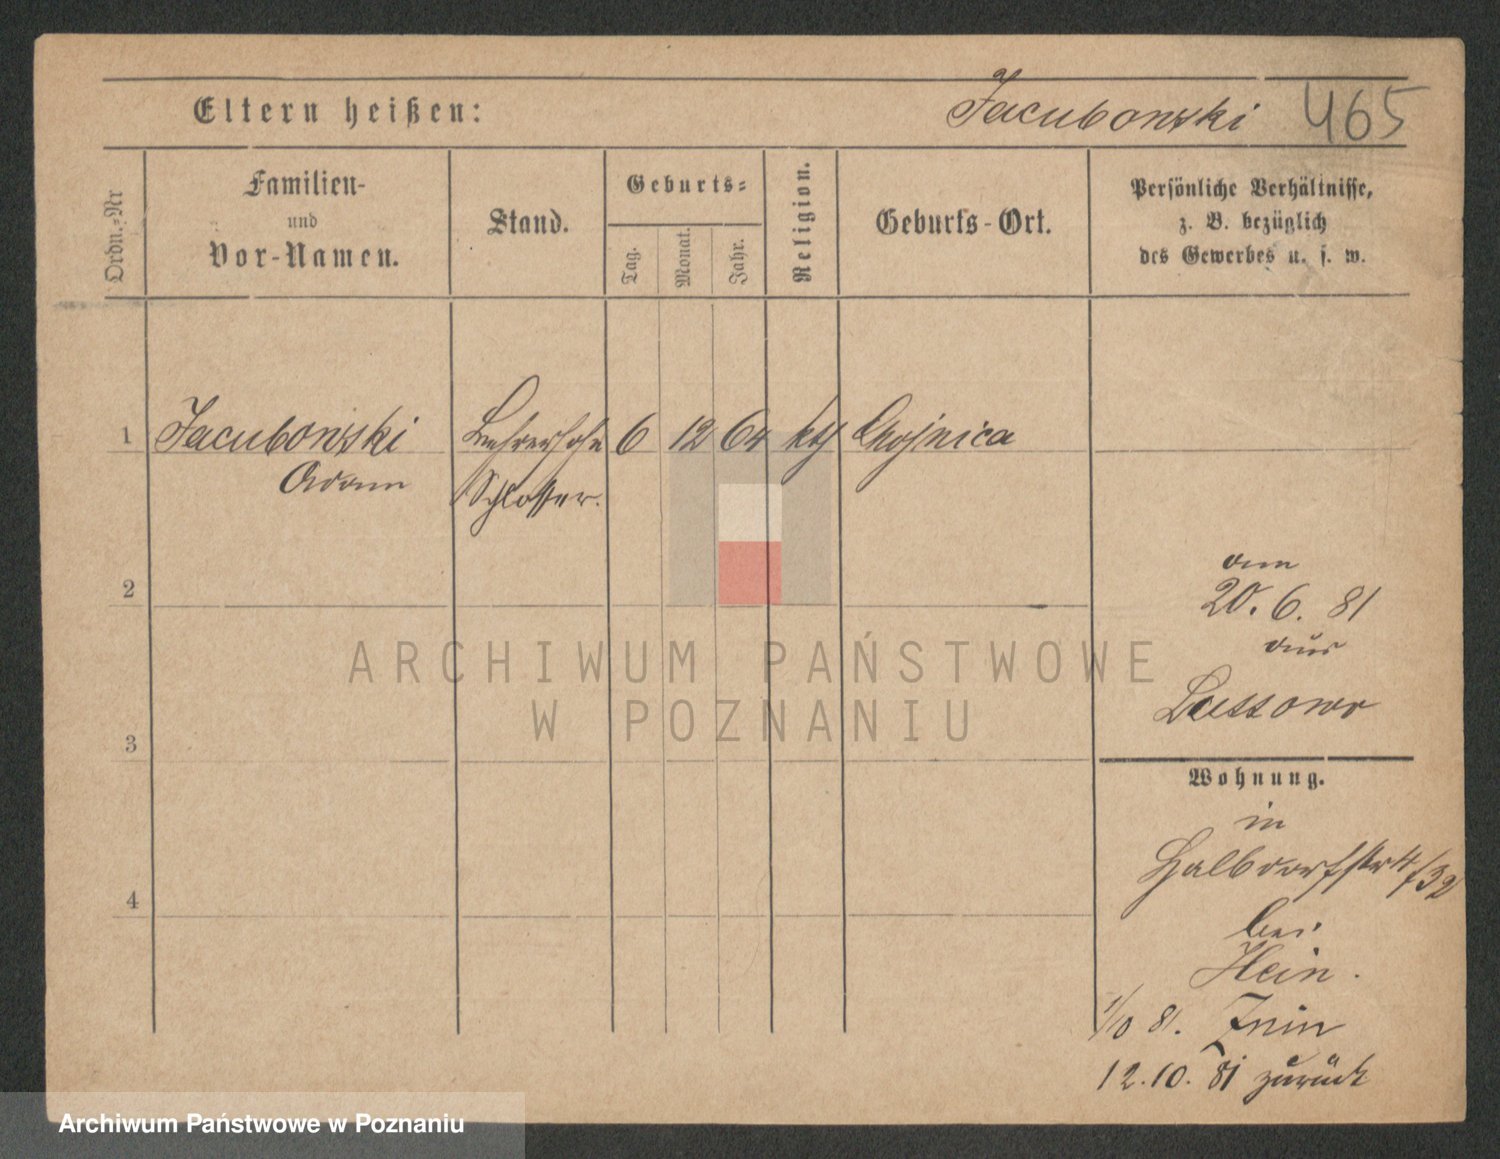 Eltern heißen:
Jacubowski 465
Ordn.-Nr
Familien-
und
Vor-Namen.
Stand.
Geburts-
Tag.
Monat.
Jahr.
Religion.
Geburts-Ort.
Persönliche Verhältnisse,
z. B. bezüglich
des Gewerbes u. s. w.
1 Jacubowski Lehrersohn 6 12 64 kth Chojnica
Adam Schlosser.
am
2
20. 6. 81
aus
ARCHIWUM PAŃSTWOWE
W POZNANIU
Lussowo
3
Wohnung.
in
Halbdorfstr 4/32
4
bei
Hein.
1/10 81. Znin
12.10.81 zurück
Archiwum Państwowe w Poznaniu